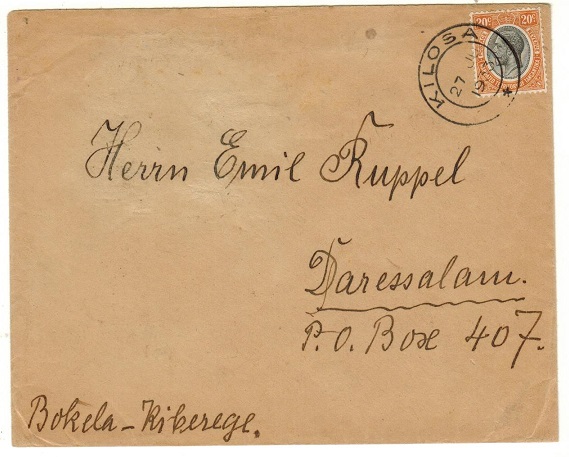 20c 20c
KILOSA
27
Herrn Emil Ruppel
Daressalam.
P.O. Box 407.
Bokela-Kiberege.